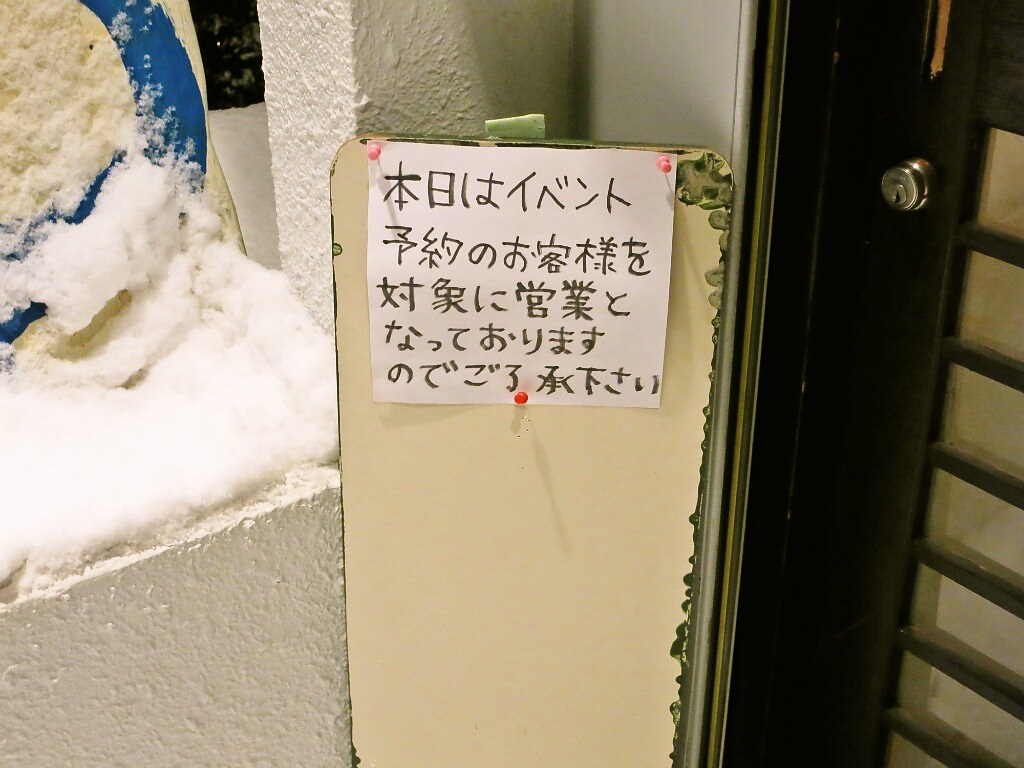 本日はイベント
予約のお客様を
対象に営業と
なっております
のでごろ承下さい